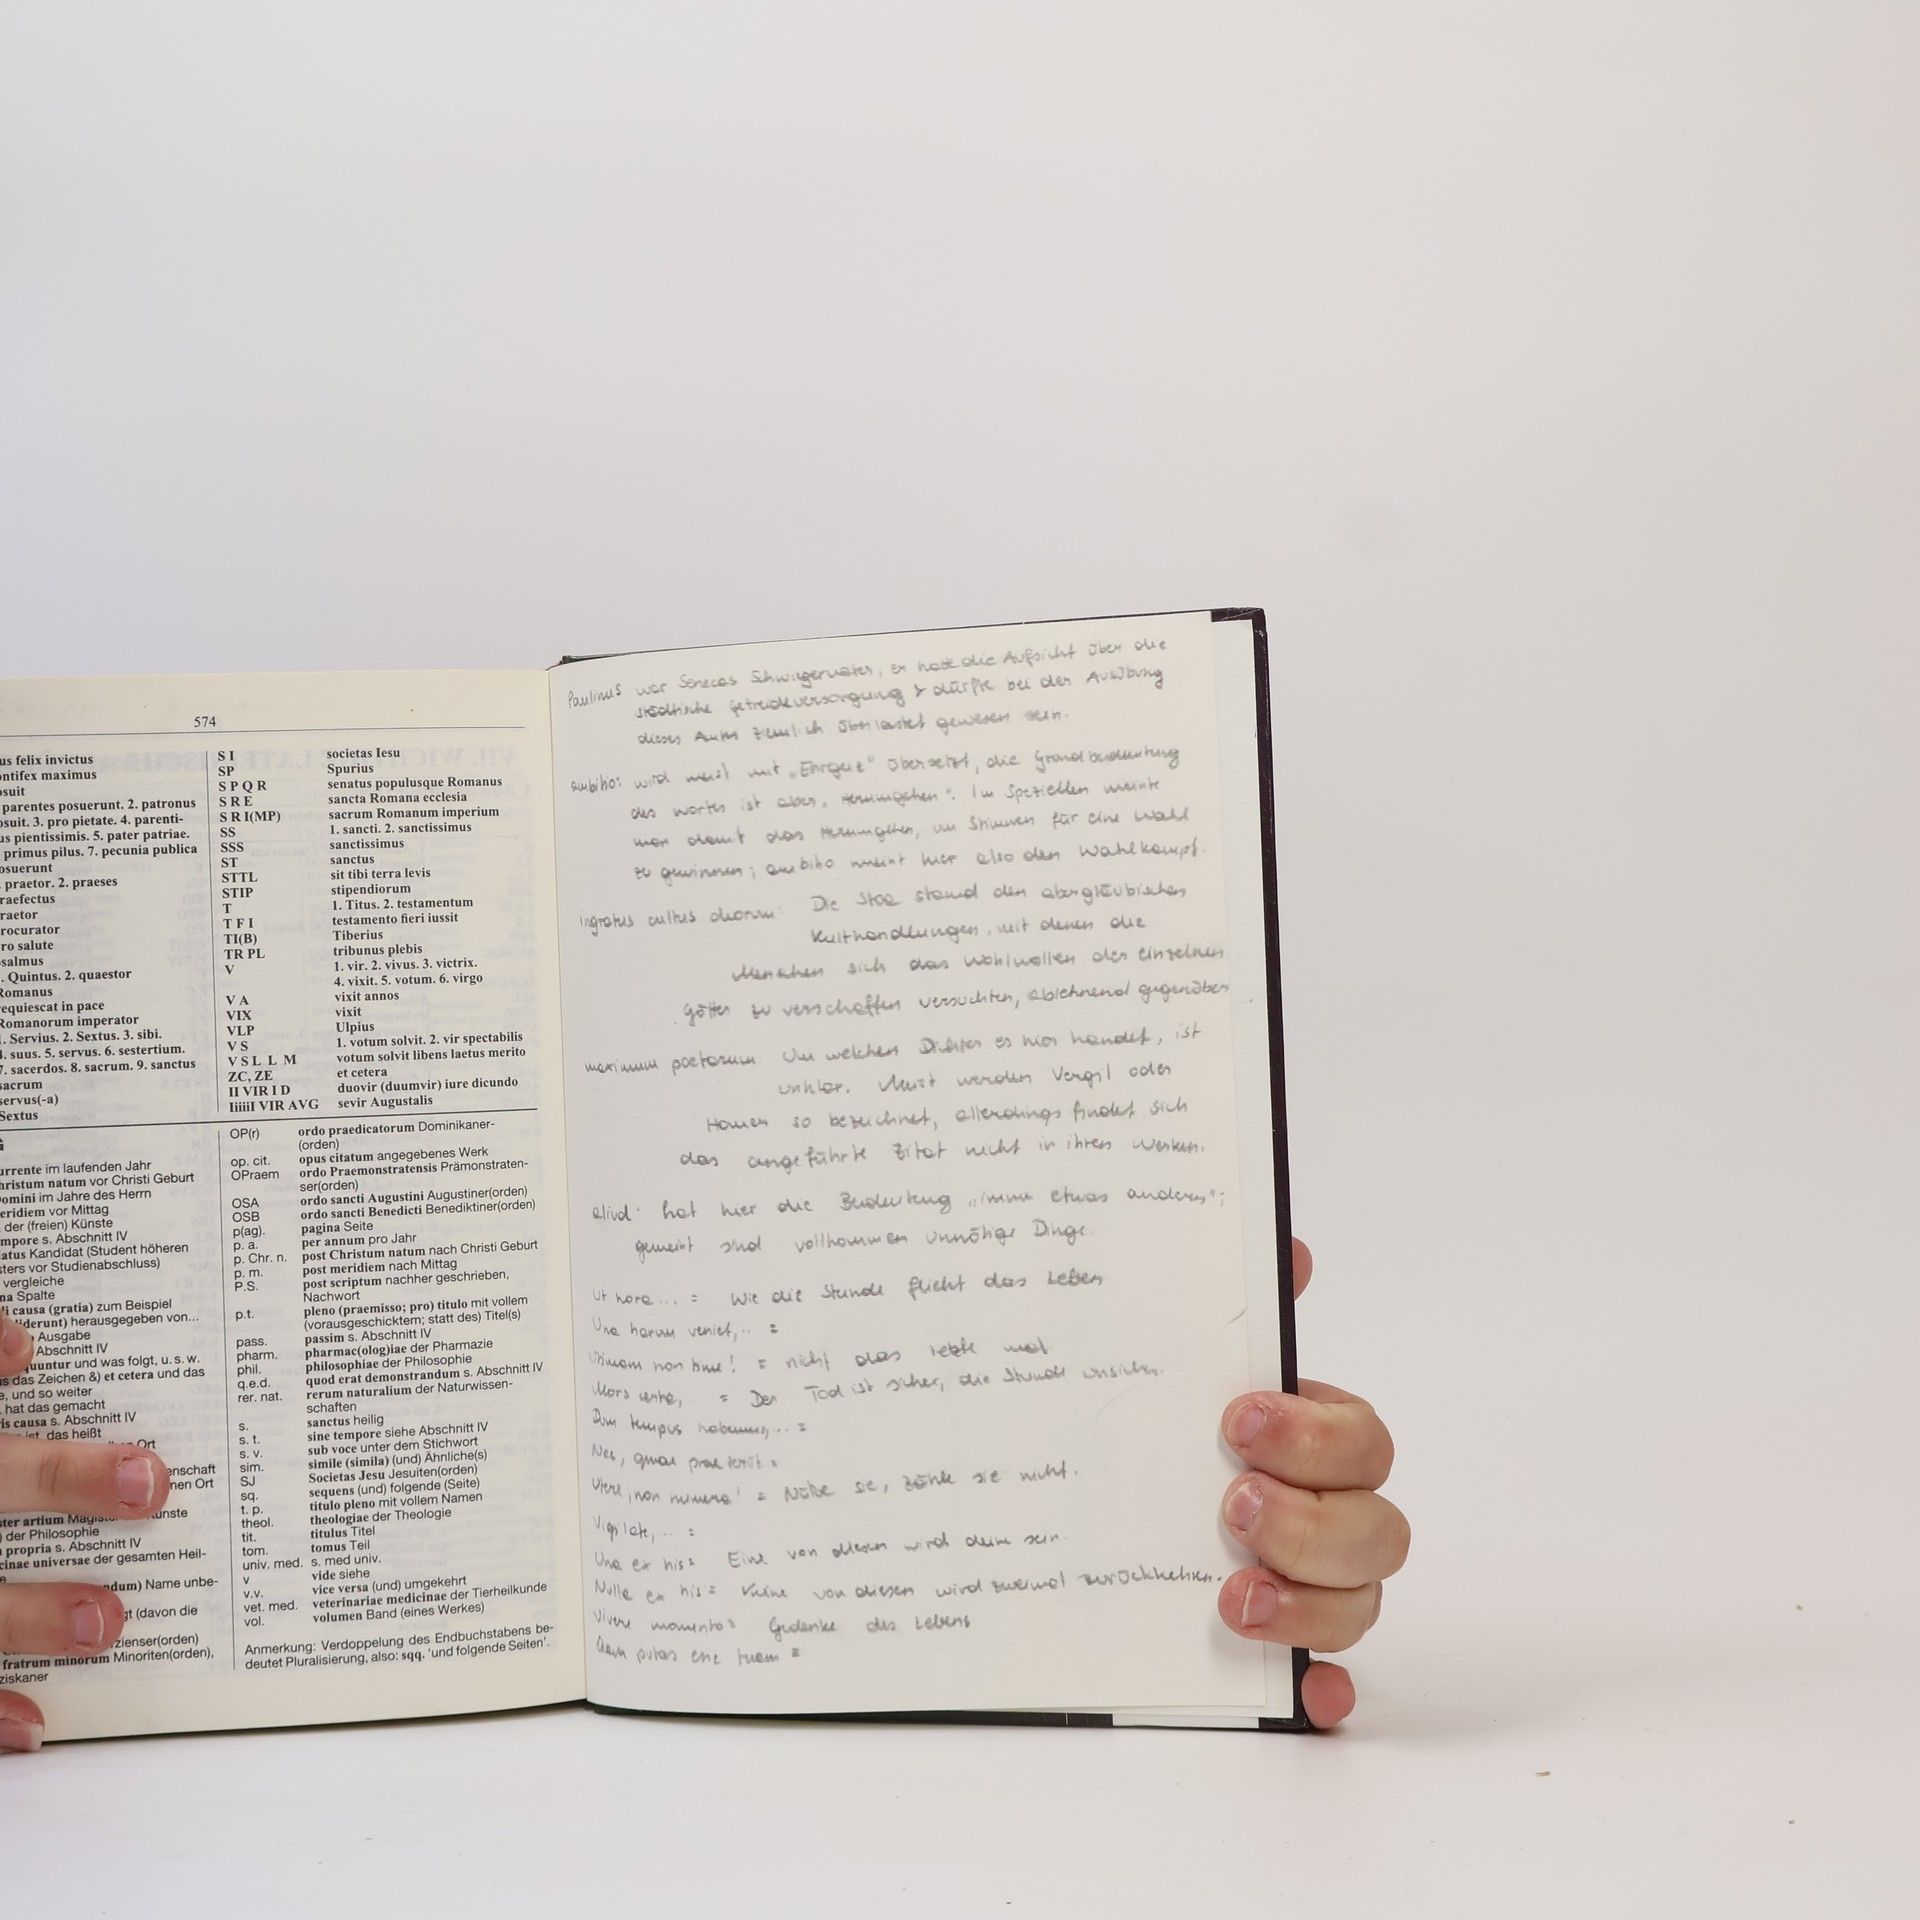 574
us felix invictus
ontifex maximus
osuit
parentes posuerunt. 2. patronus
osuit. 3. pro pietate. 4. parenti-
us pientissimis. 5. pater patriae.
primus pilus. 7. pecunia publica
osuerunt
praetor. 2. praeses
raefectus
raetor
rocurator
ro salute
salmus
. Quintus. 2. quaestor
Romanus
requiescat in pace
Romanorum imperator
. Servius. 2. Sextus. 3. sibi.
. suus. 5. servus. 6. sestertium.
7. sacerdos. 8. sacrum. 9. sanctus
sacrum
servus(-a)
Sextus
S I societas Iesu
SP Spurius
S P Q R senatus populusque Romanus
S R E sancta Romana ecclesia
S R I(MP) sacrum Romanum imperium
SS 1. sancti. 2. sanctissimus
SSS sanctissimus
ST sanctus
STTL sit tibi terra levis
STIP stipendiorum
T 1. Titus. 2. testamentum
T F I testamento fieri iussit
TI(B) Tiberius
TR PL tribunus plebis
V 1. vir. 2. vivus. 3. victrix.
4. vixit. 5. votum. 6. virgo
V A vixit annos
VIX vixit
VLP Ulpius
V S 1. votum solvit. 2. vir spectabilis
V S L L M votum solvit libens laetus merito
ZC, ZE et cetera
II VIR I D duovir (duumvir) iure dicundo
IiiiiI VIR AVG sevir Augustalis
G
urrente im laufenden Jahr
hristum natum vor Christi Geburt
Domini im Jahre des Herrn
meridiem vor Mittag
der (freien) Künste
mpore s. Abschnitt IV
atus Kandidat (Student höheren
sters vor Studienabschluss)
vergleiche
na Spalte
li causa (gratia) zum Beispiel
(liderunt) herausgegeben von...
Ausgabe
Abschnitt IV
quuntur und was folgt, u. s. w.
us das Zeichen &) et cetera und das
e, und so weiter
hat das gemacht
ris causa s. Abschnitt IV
ist, das heißt
Ort
enschaft
nen Ort
ster artium Magister Künste
) der Philosophie
propria s. Abschnitt IV
cinae universae der gesamten Heil-
ndum) Name unbe-
gt (davon die
zienser(orden)
fratrum minorum Minoriten(orden),
ziskaner
OP(r) ordo praedicatorum Dominikaner-
(orden)
op. cit. opus citatum angegebenes Werk
OPraem ordo Praemonstratensis Prämonstraten-
ser(orden)
OSA ordo sancti Augustini Augustiner(orden)
OSB ordo sancti Benedicti Benediktiner(orden)
p(ag). pagina Seite
p. a. per annum pro Jahr
p. Chr. n. post Christum natum nach Christi Geburt
p. m. post meridiem nach Mittag
P.S. post scriptum nachher geschrieben,
Nachwort
p.t. pleno (praemisso; pro) titulo mit vollem
(vorausgeschicktem; statt des) Titel(s)
pass. passim s. Abschnitt IV
pharm. pharmac(olog)iae der Pharmazie
phil. philosophiae der Philosophie
q.e.d. quod erat demonstrandum s. Abschnitt IV
rer. nat. rerum naturalium der Naturwissen-
schaften
s. sanctus heilig
s. t. sine tempore siehe Abschnitt IV
s. v. sub voce unter dem Stichwort
sim. simile (simila) (und) Ähnliche(s)
SJ Societas Jesu Jesuiten(orden)
sq. sequens (und) folgende (Seite)
t. p. titulo pleno mit vollem Namen
theol. theologiae der Theologie
tit. titulus Titel
tom. tomus Teil
univ. med. s. med univ.
v vide siehe
v.v. vice versa (und) umgekehrt
vet. med. veterinariae medicinae der Tierheilkunde
vol. volumen Band (eines Werkes)
Anmerkung: Verdoppelung des Endbuchstabens be-
deutet Pluralisierung, also: sqq. 'und folgende Seiten'.
Paulinus war Senecas Schwiegervater, er hatte die Aufsicht über die
städtische Getreideversorgung & dürfte bei der Ausübung
dieses Amtes ziemlich überlastet gewesen sein.
ambitio: wird meist mit „Ehrgeiz" übersetzt, die Grundbedeutung
des Wortes ist aber „Herumgehen". Im Speziellen meinte
man damit das Herumgehen, um Stimmen für eine Wahl
zu gewinnen; ambitio meint hier also den Wahlkampf.
ingratus cultus deorum: Die Stoa stand den abergläubischen
Kulthandlungen, mit denen die
Menschen sich das Wohlwollen der einzelnen
Götter zu verschaffen versuchten, ablehnend gegenüber
maximum poetarum Um welchen Dichter es hier handelt, ist
unklar. Meist werden Vergil oder
Homer so bezeichnet, allerdings findet sich
das angeführte Zitat nicht in ihren Werken.
aliud: hat hier die Bedeutung „immer etwas anderes";
gemeint sind vollkommen unnötige Dinge.
Ut hora... = Wie die Stunde flieht das Leben
Una harum veniet,.. =
Ultimam non time! = nicht das letzte mal
Mors certa, = Der Tod ist sicher, die Stunde unsicher.
Dum tempus habemus,... =
Nec, quae praeteriit =
Utere, non numera! = Nütze sie, zähle sie nicht.
Vigilate,... =
Una ex his = Eine von diesen wird deine sein.
Nulla ex his = Keine von diesen wird zweimal zurückkehren.
Vivere momento = Gedenke des Lebens
Quam putas esse tuam =